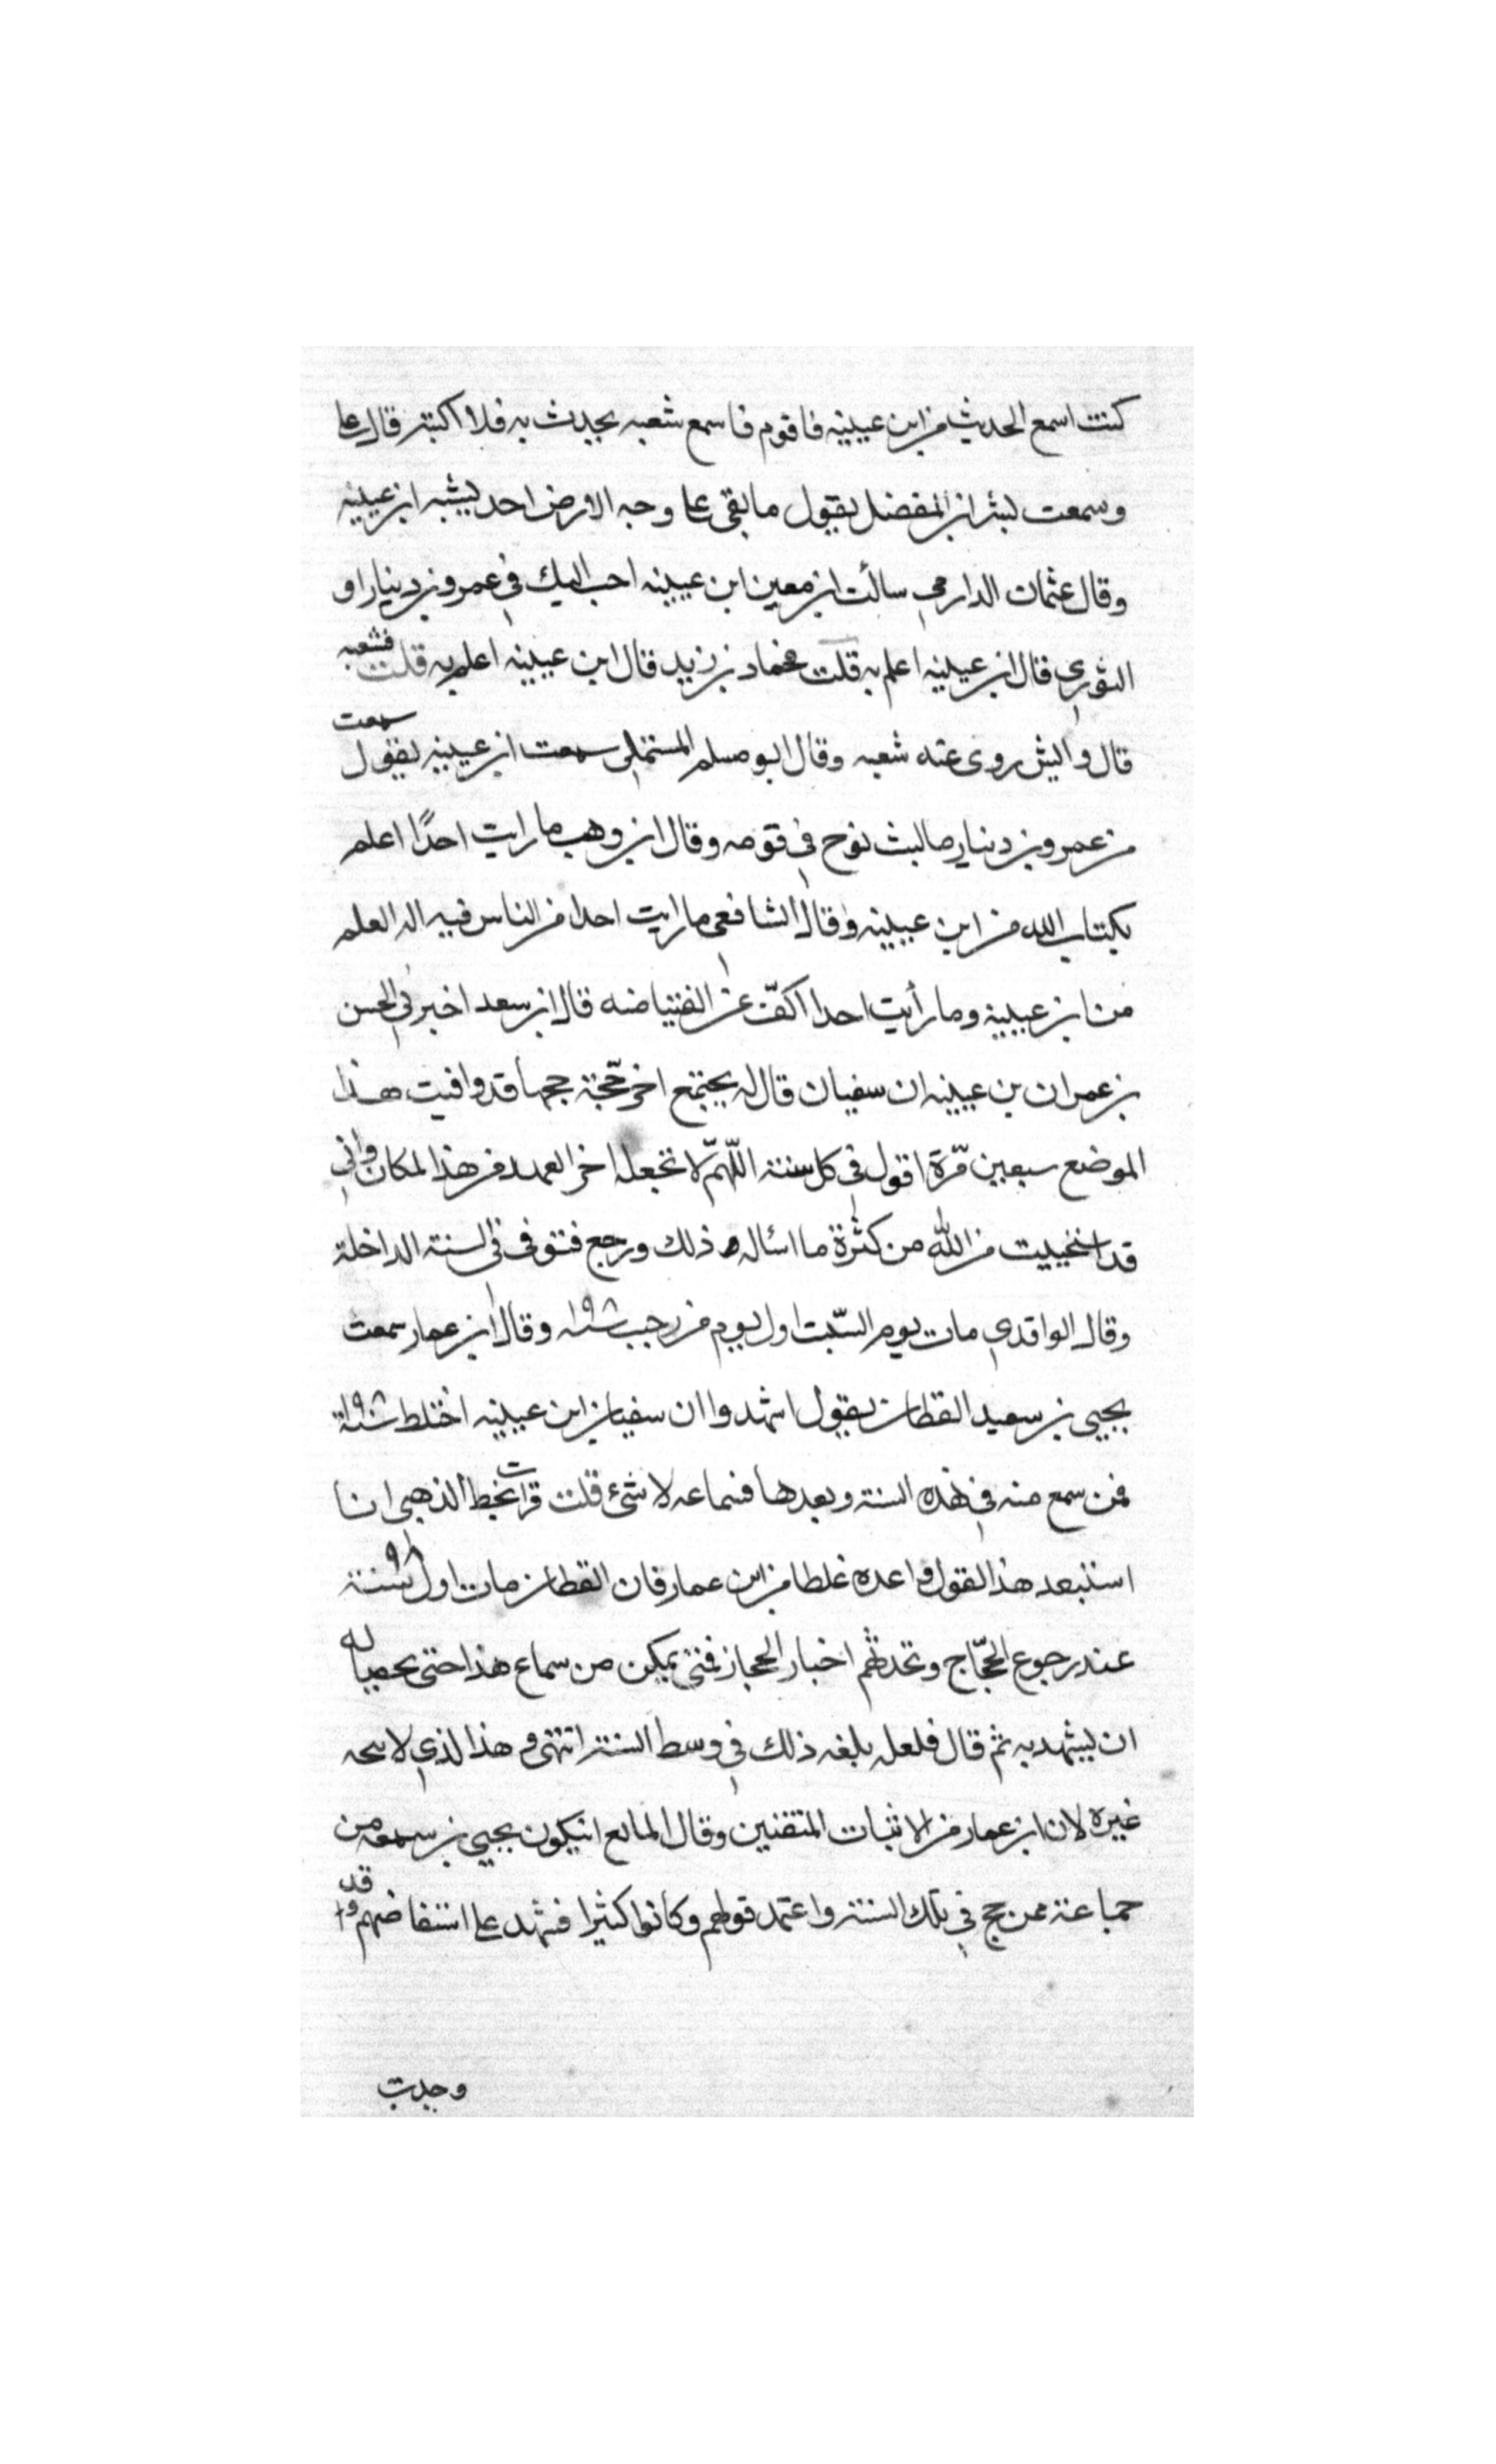 كنت اسمع الحديث من ابن عيينه فاقوم فاسمع شعبه يحدث به فلا اكتبه قال على
وسمعت بشر ابن المفضل يقول ما بقى على وجه الارض احد يشبه ابن عيينه
وقال عثمان الدارمي سالت ابن معين ابن عيينه احب اليك في عمرو بن دينار او
الثوري قال ابن عيينه اعلم به قلت فحماد بن زيد قال ابن عيينه اعلم به قلت فشعبه
قال وايش روى عنه شعبه وقال ابو مسلم المستملى سمعت ابن عيينه يقول سمعت
من عمرو بن دينار ما لبث نوح في قومه وقال ابن وهب ما رايت احدًا اعلم
بكتاب الله من ابن عيينه وقال الشافعى ما رايت احدا من الناس فيه اله العلم
من ابن عيينه وما رأيت احدا اكفّ عن الفتيا منه قال ابن سعد اخبرني الحسن
بن عمران بن عيينه ان سفيان قال له بجمع اخر حجّة حجها قد وافيت هذا
الموضع سبعين مرّة اقول في كل سنة اللّهمّ لا تجعله اخر العهد من هذا المكان واني
قد استحييت من الله من كثرة ما اسأله ذلك ورجع فتوفى في السنة الداخلة
وقال الواقدي مات يوم السّبت اول يوم من رجب سنه ١٩٨ وقال ابن عمار سمعت
يحيى بن سعيد القطان يقول اشهدوا ان سفيان ابن عيينه اختلط سنة ١٩٧
فمن سمع منه في هذه السنة وبعدها فسماعه لا شئ قلت قرات بخط الذهبى انا
استبعد هذا القول واعده غلطا من ابن عمار فان القطان مات اول سنة ٩٨
عند رجوع الحجّاج وتحدثهم اخبار الحجاز فمتى يمكن من سماع هذا حتى يتهيا له
ان يشهد به ثم قال فلعله بلغه ذلك في وسط السنة انتهى وهذا الذي لا يتجه
غيره لان ابن عمار من الاثبات المتقنين وقال المانع ان يكون يحيى بن سمعه من
جماعة ممن حج في تلك السنة واعتمد قولهم وكانوا كثيرا فشهد على استفاضتهم وقد
وجدت